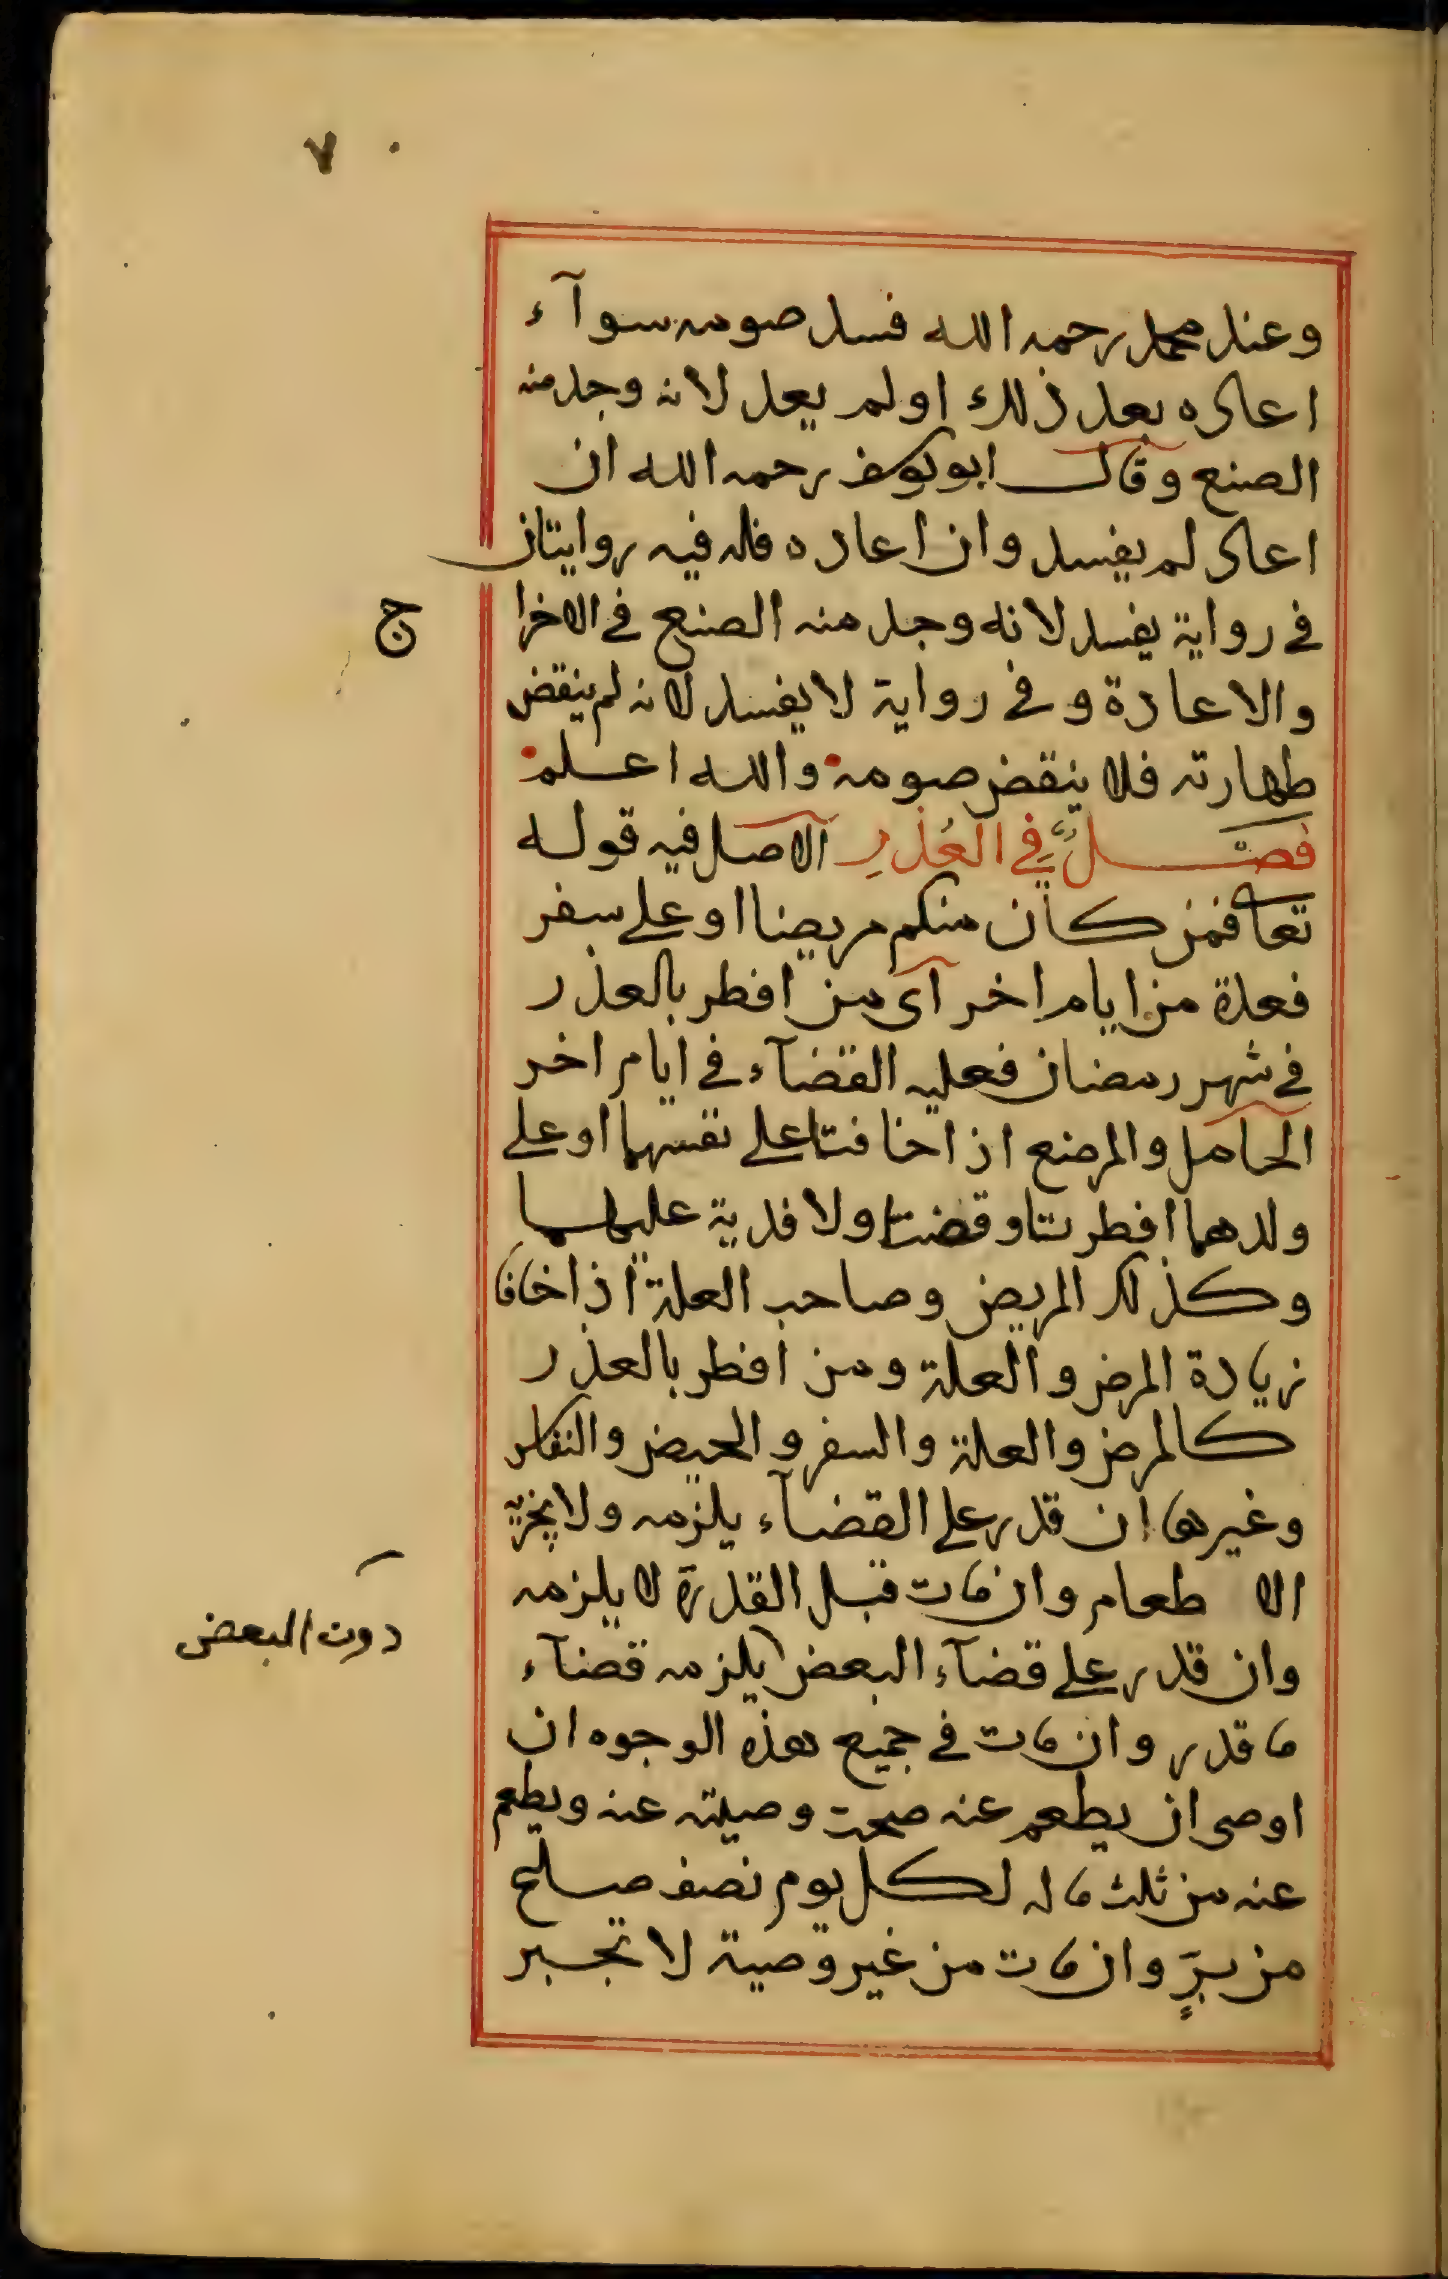 ٧٠
وعند محمد رحمه الله فسد صومه سوآء
اعاده بعد ذلك اولم يعد لانه وجد منه
الصنع وقال ابويوسف رحمه الله ان
اعاد لم يفسد وان اعاده فله فيه روايتان
في رواية يفسد لانه وجد منه الصنع في الاخرا
ج
والاعادة وفي رواية لا يفسد لانه لم ينقض
طهارته فلا ينقض صومه والله اعلم
فصل في العذر الاصل فيه قوله
تعا فمن كان منكم مريضا او على سفر
فعدة من ايام اخر آى من افطر بالعذر
في شهر رمضان فعليه القضآء في ايام اخر
الحامل والمرضع اذا خافتا على نفسهما او على
ولدهما افطرتا وقضتا ولا فدية عليهما
وكذلك المريض وصاحب العلة اذا خافا
زيادة المرض والعلة ومن افطر بالعذر
كالمرض والعلة والسفر والحيض والنفاس
وغيرها ان قدر على القضآء يلزمه ولا يجزيه
الا طعام وان مات قبل القدرة لا يلزمه
وان قدر على قضآء البعض يلزمه قضآء
دون البعض
ما قدر وان مات في جميع هذه الوجوه ان
اوصى ان يطعم عنه صحت وصيته عنه ويطعم
عنه من ثلث ماله لكل يوم نصف صاع
من برٍّ وان مات من غير وصية لا تجبر